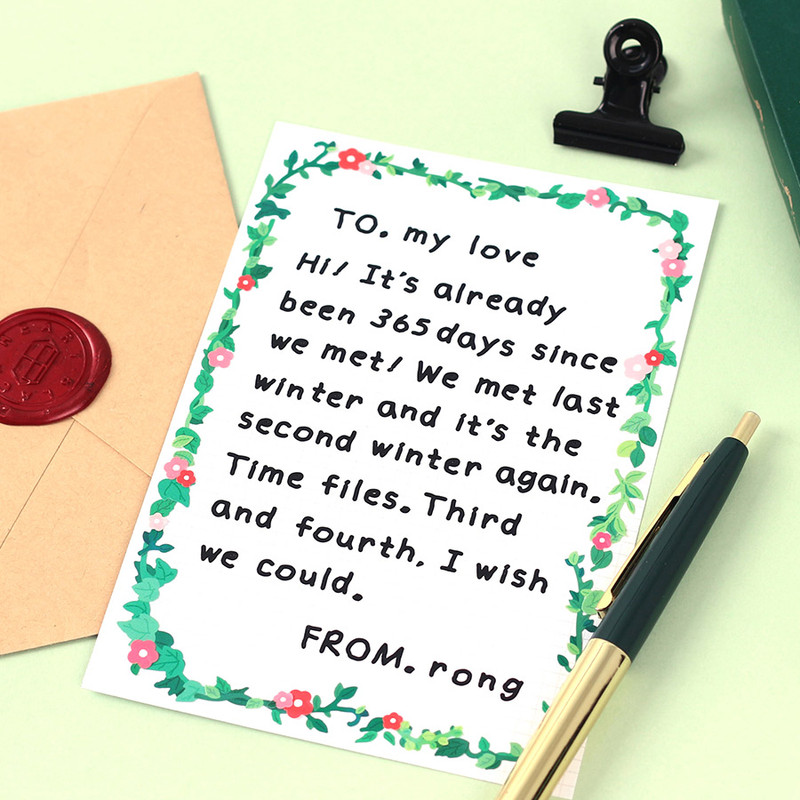 TO. my love
Hi! It's already
been 365days since
we met! We met last
winter and it's the
second winter again.
Time files. Third
and fourth, I wish
we could.
FROM. rong